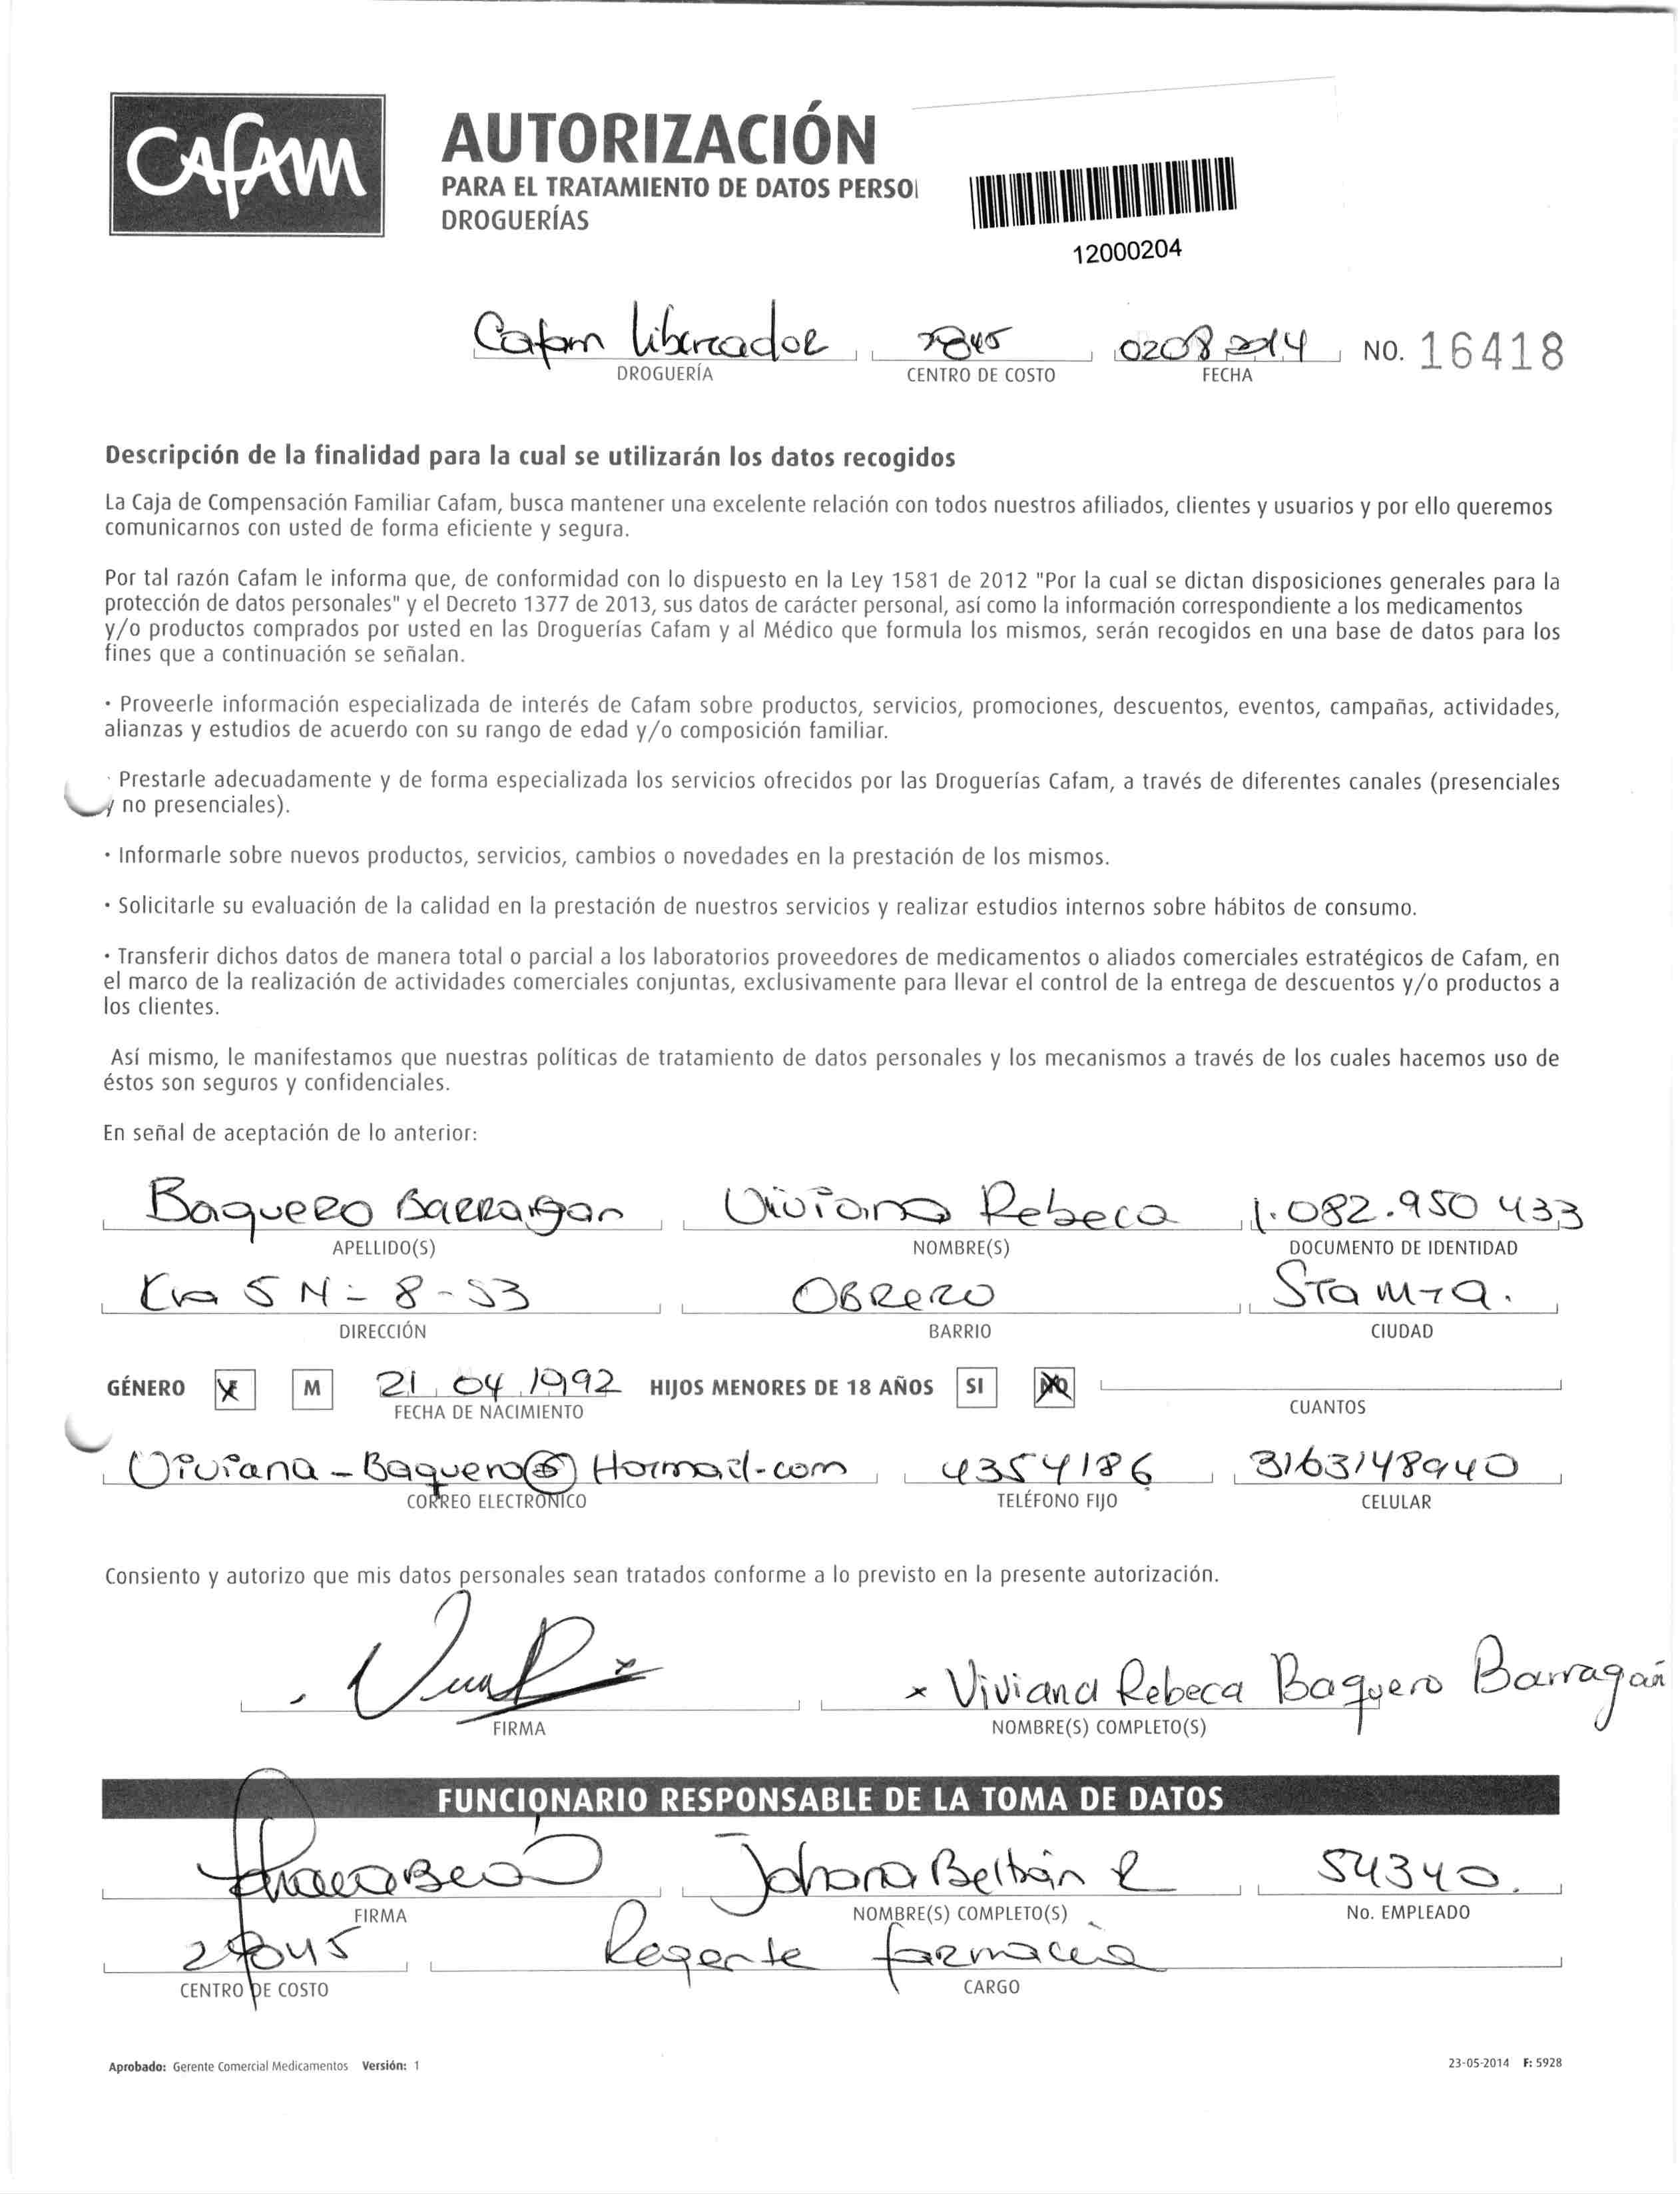 CAFAM
AUTORIZACIÓN
PARA EL TRATAMIENTO DE DATOS PERSO
DROGUERÍAS
12000204
Cafam libertador 02082014 NO. 16418
DROGUERÍA CENTRO DE COSTO FECHA
Descripción de la finalidad para la cual se utilizarán los datos recogidos
La Caja de Compensación Familiar Cafam, busca mantener una excelente relación con todos nuestros afiliados, clientes y usuarios y por ello queremos
comunicarnos con usted de forma eficiente y segura.
Por tal razón Cafam le informa que, de conformidad con lo dispuesto en la Ley 1581 de 2012 "Por la cual se dictan disposiciones generales para la
protección de datos personales" y el Decreto 1377 de 2013, sus datos de carácter personal, así como la información correspondiente a los medicamentos
y/o productos comprados por usted en las Droguerías Cafam y al Médico que formula los mismos, serán recogidos en una base de datos para los
fines que a continuación se señalan.
· Proveerle información especializada de interés de Cafam sobre productos, servicios, promociones, descuentos, eventos, campañas, actividades,
alianzas y estudios de acuerdo con su rango de edad y/o composición familiar.
· Prestarle adecuadamente y de forma especializada los servicios ofrecidos por las Droguerías Cafam, a través de diferentes canales (presenciales
y no presenciales).
· Informarle sobre nuevos productos, servicios, cambios o novedades en la prestación de los mismos.
· Solicitarle su evaluación de la calidad en la prestación de nuestros servicios y realizar estudios internos sobre hábitos de consumo.
· Transferir dichos datos de manera total o parcial a los laboratorios proveedores de medicamentos o aliados comerciales estratégicos de Cafam, en
el marco de la realización de actividades comerciales conjuntas, exclusivamente para llevar el control de la entrega de descuentos y/o productos a
los clientes.
Así mismo, le manifestamos que nuestras políticas de tratamiento de datos personales y los mecanismos a través de los cuales hacemos uso de
éstos son seguros y confidenciales.
En señal de aceptación de lo anterior:
Baquero Barragan Viviana Rebeca 1.082.950 433
APELLIDO(S) NOMBRE(S) DOCUMENTO DE IDENTIDAD
Kra 5 N - 8 - 53 OBRERO Sta Mta.
DIRECCIÓN BARRIO CIUDAD
GÉNERO X M 21 04 1992 HIJOS MENORES DE 18 AÑOS SI NO
FECHA DE NACIMIENTO CUANTOS
Viviana - Baquero@Hotmail-com 4354186 3163148940
CORREO ELECTRÓNICO TELÉFONO FIJO CELULAR
Consiento y autorizo que mis datos personales sean tratados conforme a lo previsto en la presente autorización.
x Viviana Rebeca Baquero Barragán
FIRMA NOMBRE(S) COMPLETO(S)
FUNCIONARIO RESPONSABLE DE LA TOMA DE DATOS
Johana Beltrán R 54340.
FIRMA NOMBRE(S) COMPLETO(S) No. EMPLEADO
Regente farmacia
CENTRO DE COSTO CARGO
Aprobado: Gerente Comercial Medicamentos Versión: 1 23-05-2014 F: 5928